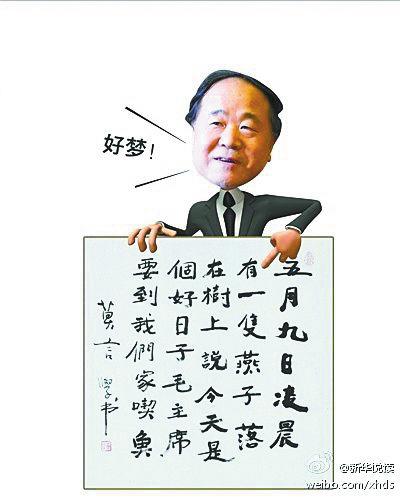 好梦!
五月九日凌晨
有一隻燕子落
在樹上說今天是
個好日子毛主席
要到我們家喫魚
莫言學书
@新华悦读
weibo.com/xhds